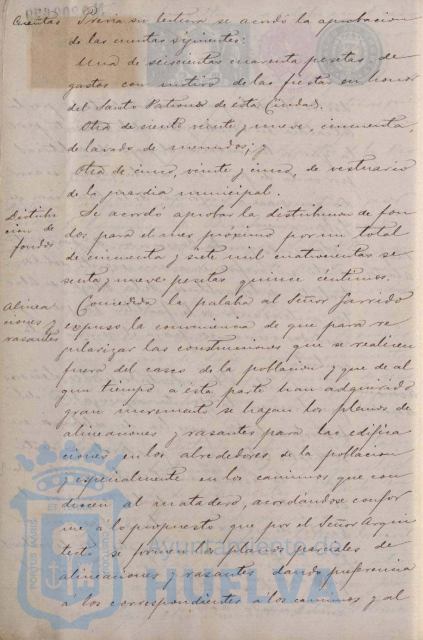 Cuentas
Previa su lectura se acordó la aprobacion
de las cuentas siguientes:
Una de seiscientas cuarenta pesetas de
gastos con motivo de las fiestas en honor
del Santo Patrono de ésta Ciudad.
Otra de ciento veinte y nueve, cincuenta,
de lavado de menudos; y
Otra de cinco, veinte y cinco, de vestuario
de la guardia municipal.
Distribu
cion de
fondos
Se acordó aprobar la distribucion de fon
dos para el mes próximo por un total
de cincuenta y siete mil cuatrocientas se
senta y nueve pesetas quince céntimos.
Alinea
ciones y
rasantes
Concedida la palabra al Señor Garrido
expuso la conveniencia de que para re
gularizar las construcciones que se realicen
fuera del casco de la poblacion y que de al
gun tiempo a ésta parte han adquirido
gran incremento se hagan los planos de
alineaciones y rasantes para las edifica
ciones en los alrededores de la poblacion
y especialmente en los caminos que con
ducen al matadero, acordándose confor
me á lo propuesto que por el Señor Arqui
tecto se formen los planos parciales de
alineaciones y rasantes dando preferencia
á los correspondientes á los caminos y al
PORTUS MARIS
Ayuntamiento de
HUELVA